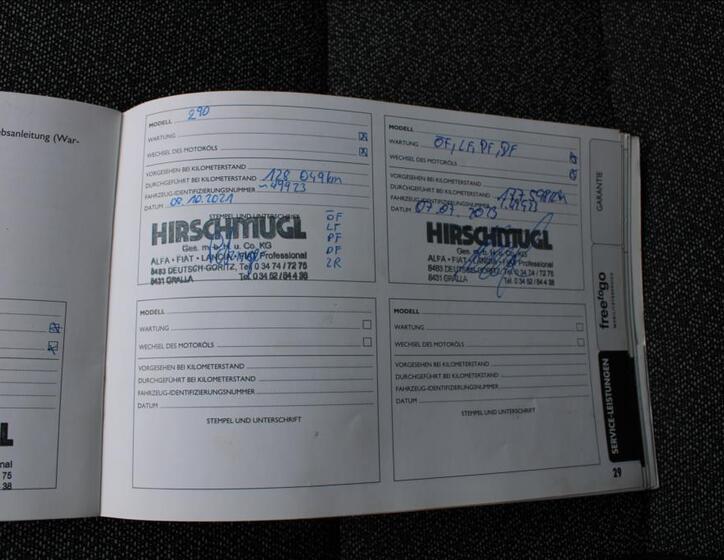 ebsanleitung (War-
nal
75
38
MODELL 290
WARTUNG
WECHSEL DES MOTORÖLS
VORGESEHEN BEI KILOMETERSTAND
DURCHGEFÜHRT BEI KILOMETERSTAND 128 049km
FAHRZEUG-IDENTIFIZIERUNGSNUMMER ~49923
DATUM 08.10.2021
STEMPEL UND UNTERSCHRIFT
HIRSCHMUGL
Ges. m. b. H. u. Co. KG
ALFA • FIAT • LANCIA • FIAT Professional
8483 DEUTSCH GORITZ, Tel. 0 34 74 / 72 75
8431 GRALLA Tel. 0 34 52 / 84 4 38
ÖF
LF
PF
DF
ZR
MODELL
WARTUNG ÖF, LF, PF,
WECHSEL DES MOTORÖLS
VORGESEHEN BEI KILOMETERSTAND
DURCHGEFÜHRT BEI KILOMETERSTAND
FAHRZEUG-IDENTIFIZIERUNGSNUMMER
DATUM 07.07.2023
HIRSCHMUGL
Ges. m. b. H. u. Co. KG
ALFA • FIAT • LANCIA • FIAT Professional
8483 DEUTSCH GORITZ, Tel. 0 34 74 / 72 75
8431 GRALLA Tel. 0 34 52 / 84 4 38
MODELL
WARTUNG
WECHSEL DES MOTORÖLS
VORGESEHEN BEI KILOMETERSTAND
DURCHGEFÜHRT BEI KILOMETERSTAND
FAHRZEUG-IDENTIFIZIERUNGSNUMMER
DATUM
STEMPEL UND UNTERSCHRIFT
MODELL
WARTUNG
WECHSEL DES MOTORÖLS
VORGESEHEN BEI KILOMETERSTAND
DURCHGEFÜHRT BEI KILOMETERSTAND
FAHRZEUG-IDENTIFIZIERUNGSNUMMER
DATUM
STEMPEL UND UNTERSCHRIFT
GARANTIE
freetogo
SERVICE-LEISTUNGEN
29